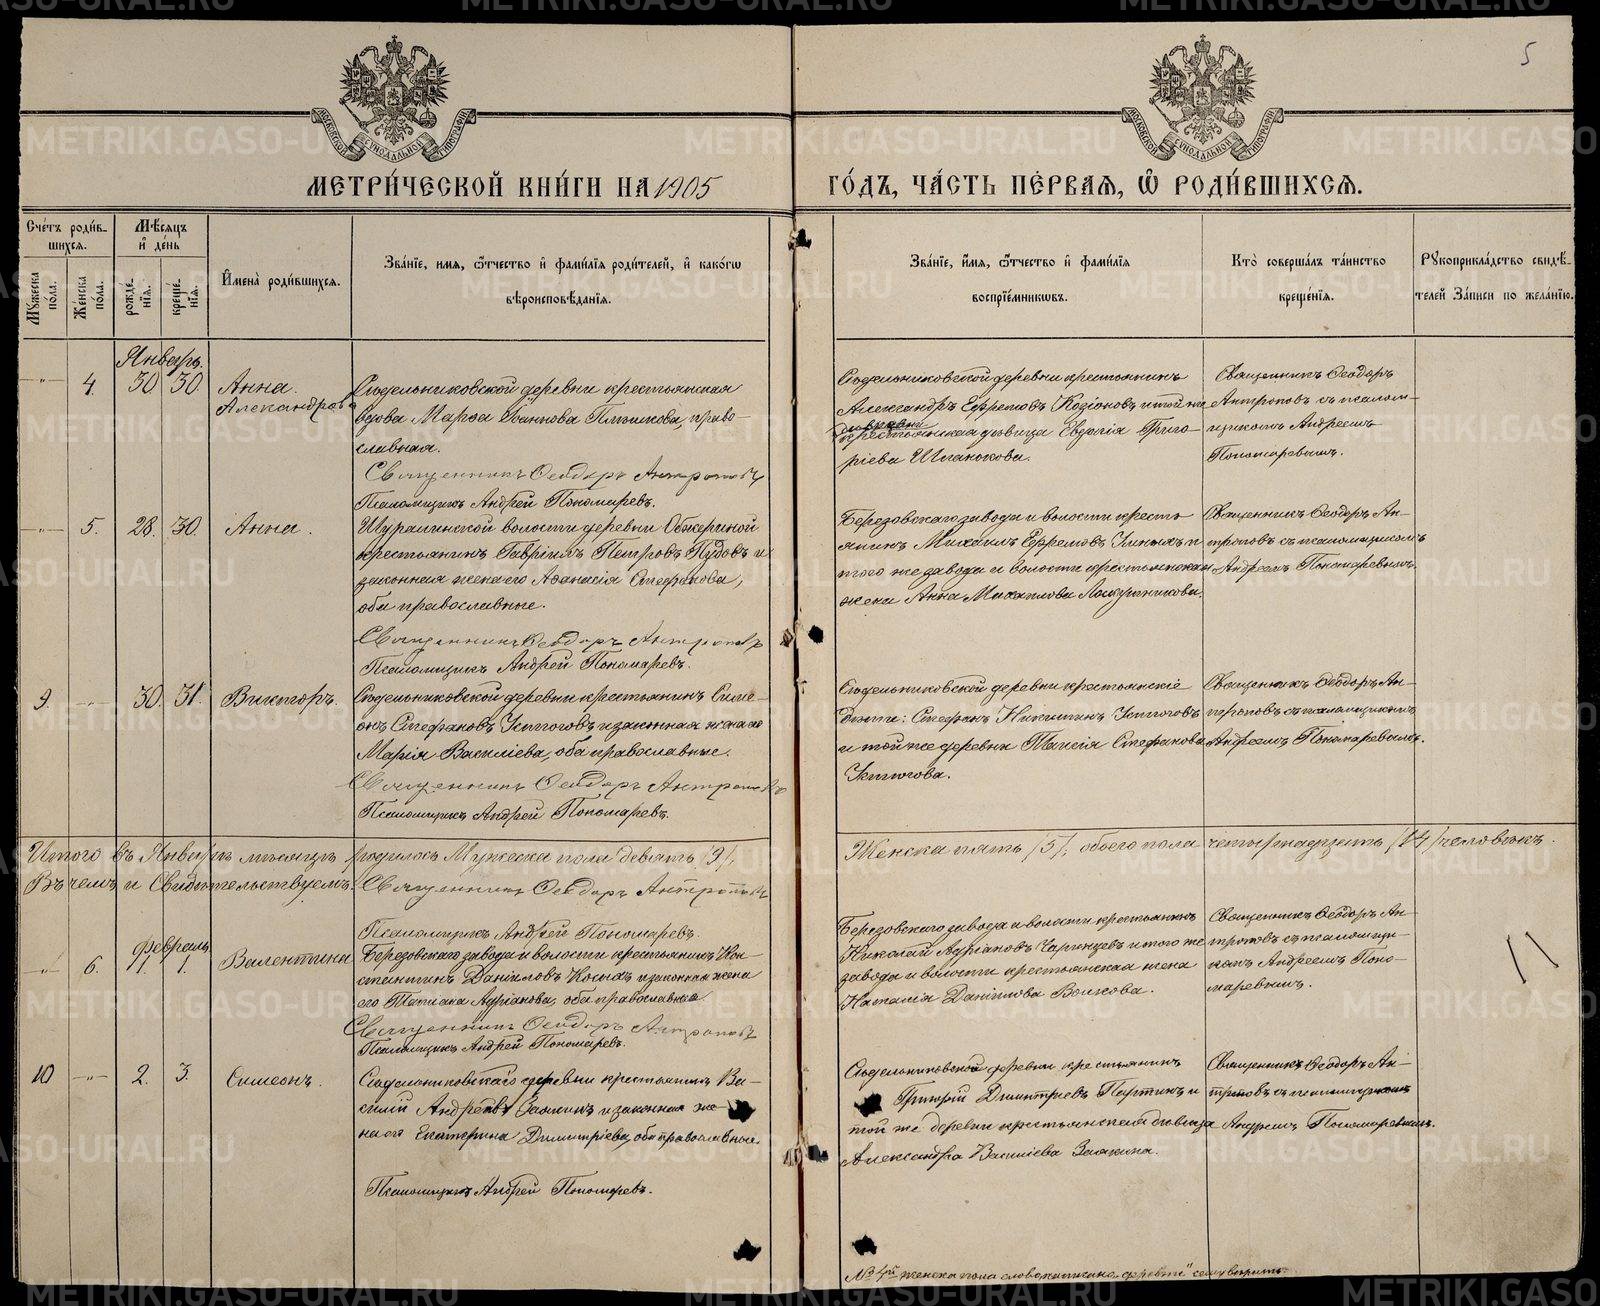 5
МЕТРИ́ЧЕСКОЙ КНИ́ГИ НА 1905
ГО́ДЪ, ЧА́СТЬ ПЕ́РВАЯ, Ѽ РОДИ́ВШИХСЯ.
Сче́тъ роди́в-
шихся.
Мѣ́сяцъ
и҆ де́нь
Мꙋ́жеска по́ла.
Же́нска по́ла.
рожде́нїѧ.
креще́нїѧ.
И҆мена̀ роди́вшихся.
Зва́нїе, имѧ, ѻ҆́тчество и҆ фами́лїѧ роди́телей, и҆ како́гѡ
вѣроисповѣ́данїѧ.
Зва́нїе, и҆́мѧ, ѻ҆́тчество и҆ фами́лїѧ
воспрїе́мникѡвъ.
Кто̀ соверша́лъ та́инство
креще́нїѧ.
Рꙋкоприкла́дство свидѣ́-
телей За́писи по жела́нїю.
Январь.
"
4.
30
30.
Анна.
Александрова
Сюдельниковской деревни крестьянская
вдова Марѳа Іоаннова, право-
славная.
Священникъ Ѳеодоръ Антроповъ
Псаломщикъ Андрей Пономаревъ.
Сюдельниковской деревни крестьянинъ
Александръ Ефремовъ Козіоновъ и той же
деревни
крестьянская дѣвица Евдокія Григо-
ріева.
Священникъ Ѳеодоръ
Антроповъ съ псалом-
щикомъ Андреемъ
Пономаревымъ.
"
5.
28.
30.
Анна.
Шуралинской волости деревни Обжериной
крестьянинъ Гавріилъ Петровъ Пудовъ и
законная жена его Аѳанасія Стефанова,
оба православные.
Священникъ Ѳеодоръ Антроповъ
Псаломщикъ Андрей Пономаревъ.
Березовскаго завода и волости кресть-
янинъ Михаилъ Ефремовъ и
того же завода и волости крестьянская
жена Анна Михаилова.
Священникъ Ѳеодоръ Ан-
троповъ съ псаломщикомъ
Андреемъ Пономаревымъ.
9.
"
30.
31.
Викторъ.
Сюдельниковской деревни крестьянинъ Симе-
онъ Стефановъ Устюговъ и законная жена его
Марія Василіева, оба православные.
Священникъ Ѳеодоръ Антроповъ
Псаломщикъ Андрей Пономаревъ.
Сюдельниковской деревни крестьянскіе
дѣти: Стефанъ Никитинъ Устюговъ
и той же деревни Таисія Стефанова
Устюгова.
Священникъ Ѳеодоръ Ан-
троповъ съ псаломщикомъ
Андреемъ Пономаревымъ.
Итого въ Январѣ мѣсяцѣ родилось Мужеска пола девять /9/,
Женска пять /5/, обоего пола четырнадцать /14/ человѣкъ.
Въ чемъ и Свидѣтельствуемъ: Священникъ Ѳеодоръ Антроповъ
Псаломщикъ Андрей Пономаревъ.
Февраль
"
6.
1.
1.
Валентина
Березовскаго завода и волости крестьянинъ Кон-
стантинъ Даніиловъ Косыхъ и законная жена
его Татіана Адріанова, оба православные.
Священникъ Ѳеодоръ Антроповъ
Псаломщикъ Андрей Пономаревъ.
Березовскаго завода и волости крестьянинъ
Николай Адріановъ и того же
завода и волости крестьянская жена
Наталія Даніилова Волкова.
Священникъ Ѳеодоръ Ан-
троповъ съ псаломщи-
комъ Андреемъ Поно-
маревымъ.
10
"
2.
3.
Симеонъ.
Сюдельниковской деревни крестьянинъ Ва-
силій Андреевъ и законная же-
на его Екатерина Димитріева, оба православные.
Псаломщикъ Андрей Пономаревъ.
Сюдельниковской деревни крестьянинъ
Григорій Димитріевъ Партинъ и
той же деревни крестьянская дѣвица
Александра Василіева.
Священникъ Ѳеодоръ Ан-
троповъ съ псаломщикомъ
Андреемъ Пономаревымъ.
№ 4й женска пола слово написано "деревни" вѣрить
METRIKI.GASO-URAL.RU